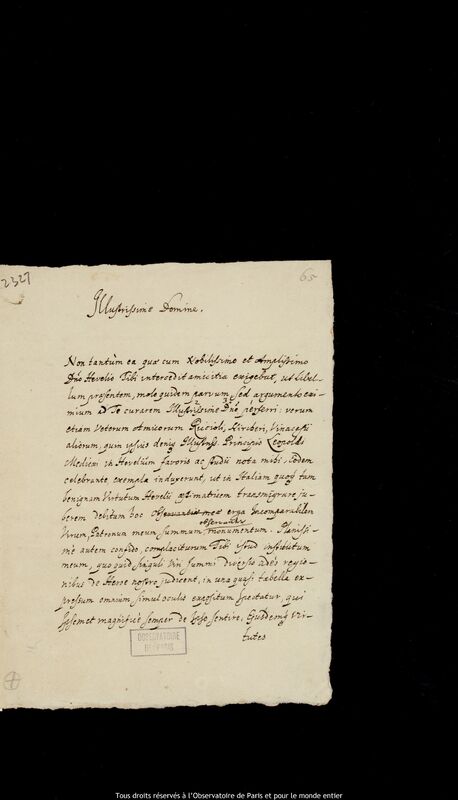 2327
65
Illustrissime Domine.
Non tantùm ea quae cum Nobilissimo et Amplissimo
Dño Hevelio Tibi intercedit amicitia exigebat, ut libel-
lum praesentem, mole quidem parvum sed argumento exi-
mium ad Te curarem Illustrissime Dñe perferri: verum
etiam Veterum Amicorum Riccioli, Kircheri, Vinacesii
aliorum, quin ipsius deniq Illustriss. Principis Leopoldi
Medicei in Hevelium favoris ac studii nota mihi, eodem
celebrante, exempla induxerunt, ut in Italiam quoq tam
benignam Virtutum Hevelii aestimatricem transmigrare ju-
berem debitum hoc erga Incomparabilem
observantiae
Virum, Patronum meum summum monumentum. Planissi-
mè autem confido, complaciturum Tibi istud institutum
meum, quo quid singuli Viri summi diversis adeò regio-
nibus de Heroe nostro judicent, in una quasi tabella ex-
pressum omnium simul oculis expositum spectatur, qui
semper de sentire. Ejusdemq Vir-
tutes
OBSERVATOIRE
DE PARIS
Tous droits réservés à l'Observatoire de Paris et pour le monde entier